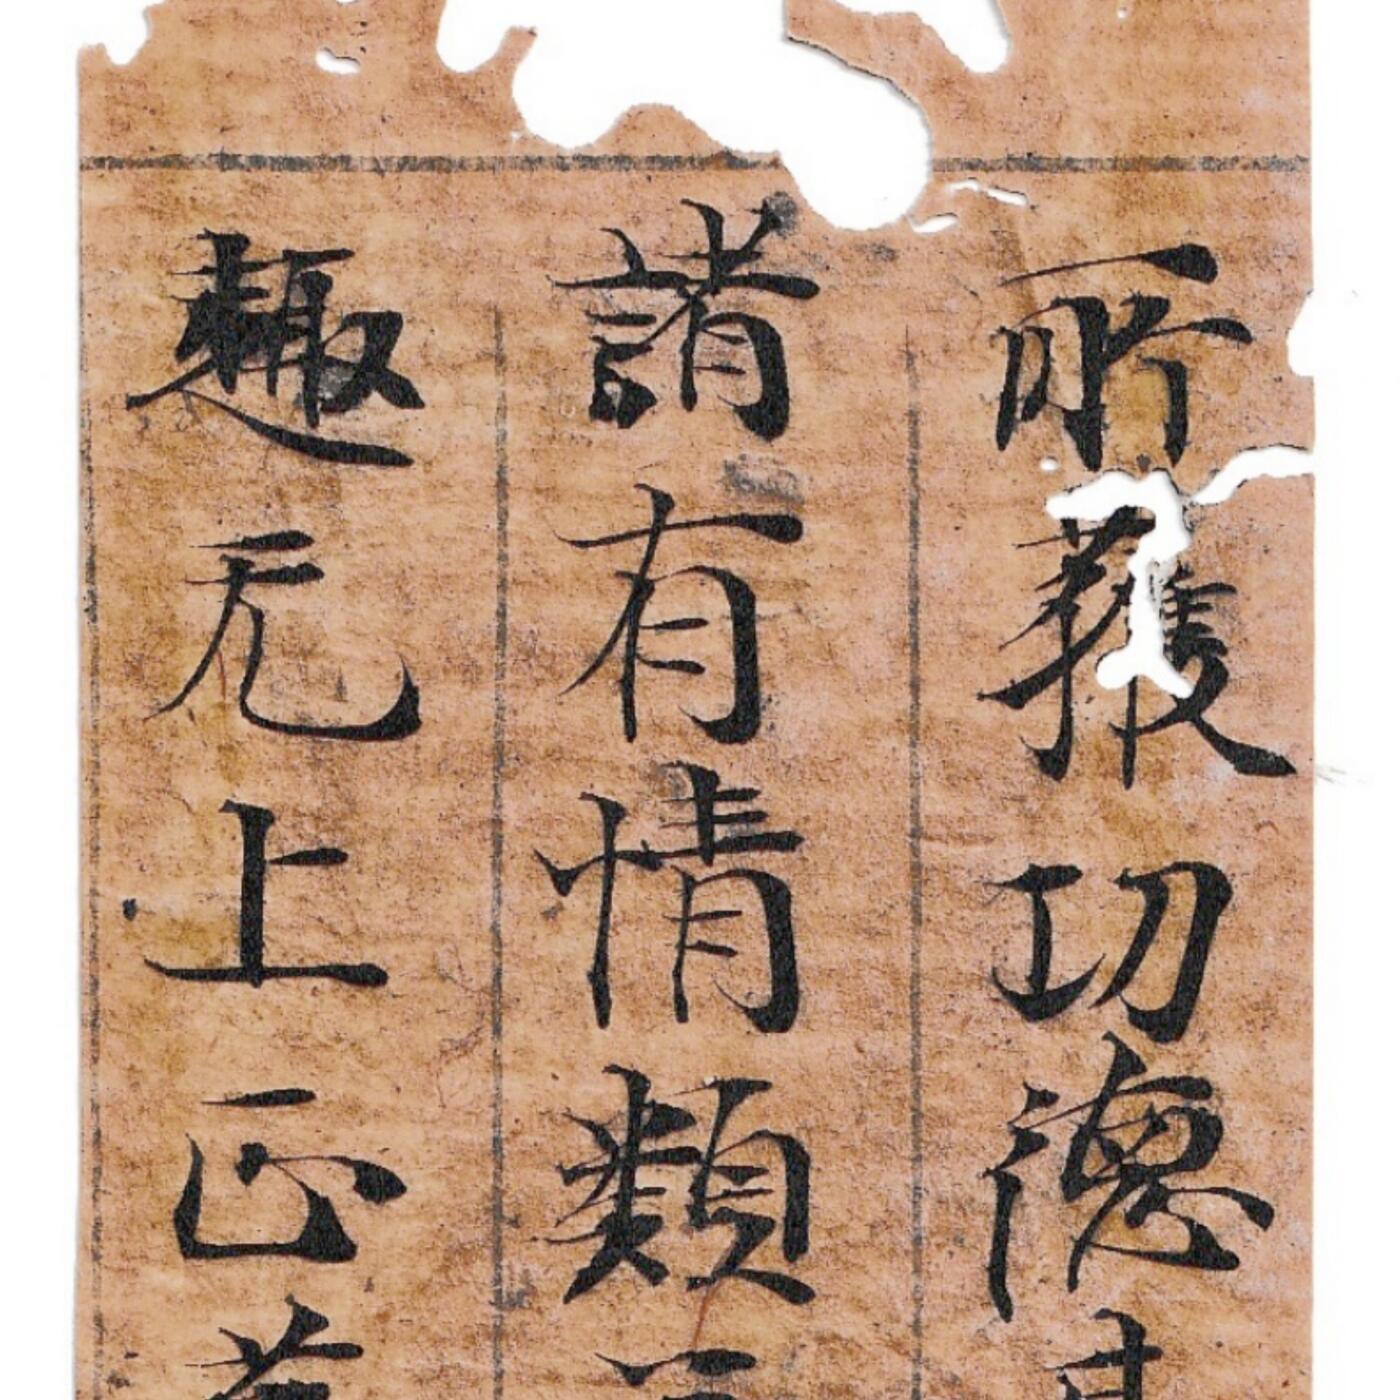 所獲功德
諸有情類
趣无上正